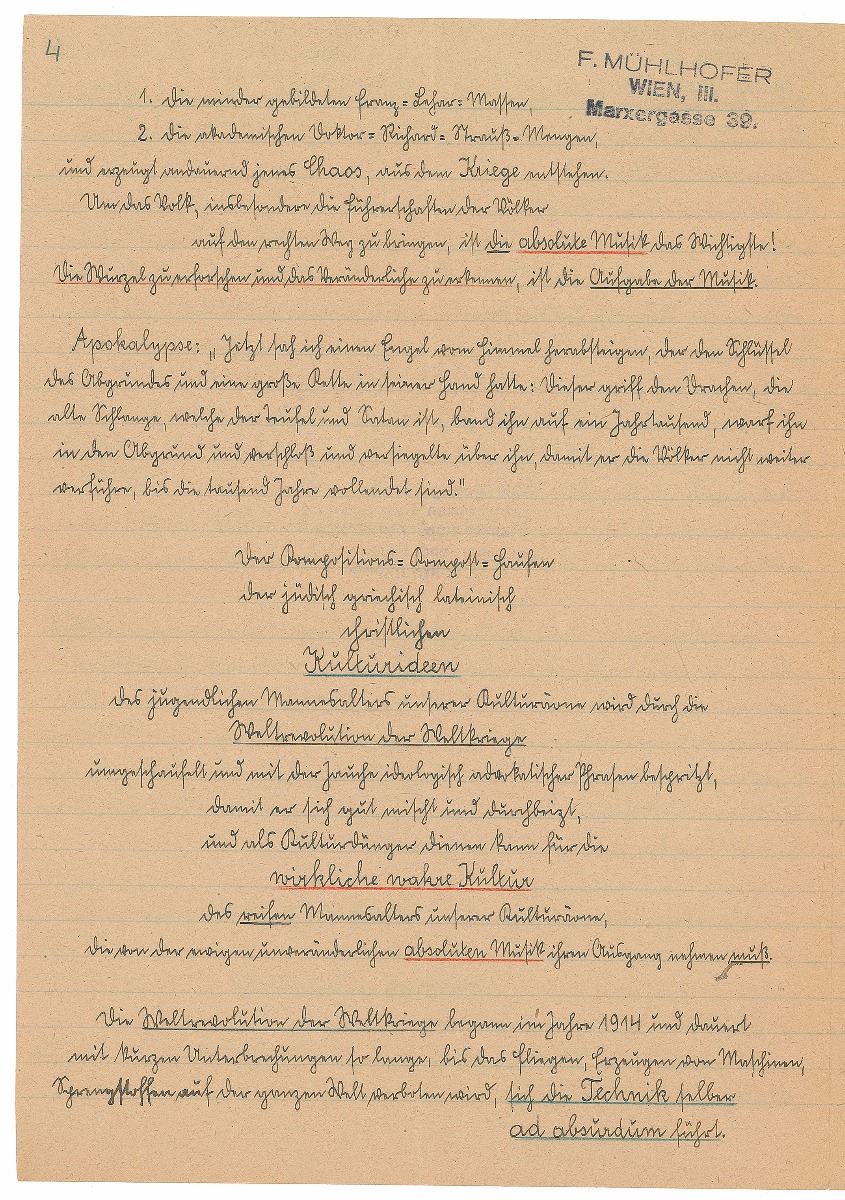 4
F. MÜHLHOFER
WIEN, III.
Marxergasse 39.
1. die minder gebildeten Franz=Lehar=Massen,
2. die akademischen Doktor=Richard=Strauß=Mengen,
und erzeugt andauernd jenes Chaos, aus dem Kriege entstehen.
Um das Volk, insbesondere die Führerschaften der Völker
auf den rechten Weg zu bringen, ist die absolute Musik das Wichtigste!
Die Wurzel zu erforschen und das Veränderliche zu erkennen, ist die Aufgabe der Musik.
Apokalypse: „Jetzt sah ich einen Engel vom Himmel herabsteigen, der den Schlüssel
des Abgrundes und eine große Kette in seiner Hand hatte: Dieser griff den Drachen, die
alte Schlange, welche der Teufel und Satan ist, band ihn auf ein Jahrtausend, warf ihn
in den Abgrund und verschloß und versiegelte über ihn, damit er die Völker nicht weiter
verführe, bis die tausend Jahre vollendet sind."
Der Kompositions=Kompost=Haufen
der jüdisch griechisch lateinisch
christlichen
Kulturideen
des jugendlichen Mannesalters unserer Kulturäone wird durch die
Weltrevolution der Weltkriege
umgeschaufelt und mit der Jauche ideologisch advokatischer Phrasen bespritzt,
damit er sich gut mischt und durchbeizt,
und als Kulturdünger dienen kann für die
wirkliche wahre Kultur
des reifen Mannesalters unserer Kulturäone,
die von der ewigen unveränderlichen absoluten Musik ihren Ausgang nehmen muß.
Die Weltrevolution der Weltkriege begann im Jahre 1914 und dauert
mit kurzen Unterbrechungen so lange, bis das Fliegen, Erzeugen von Maschinen,
Sprengstoffen auf der ganzen Welt verboten wird, sich die Technik selber
ad absurdum führt.